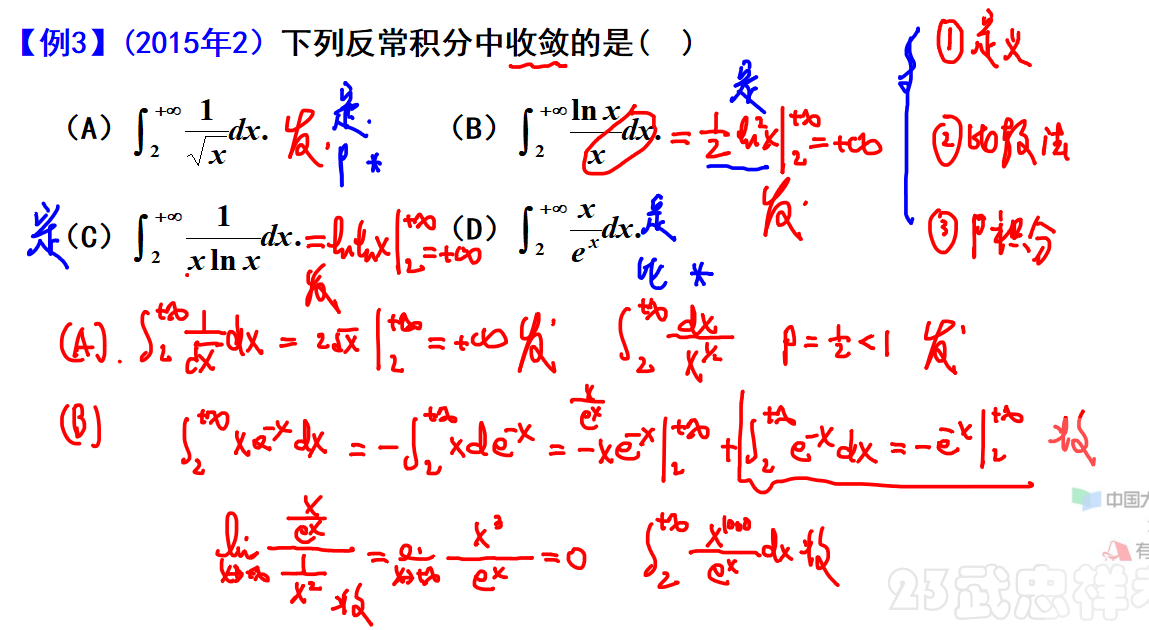 【例3】(2015年2）下列反常积分中收敛的是(　)
① 定义
(A) ∫₂^{+∞} 1/√x dx. 发. 是. P *
(B) ∫₂^{+∞} ln x/x dx. = 1/2 ln²x |₂^{+∞} = +∞ 发. 是
② 比较法
是 (C) ∫₂^{+∞} 1/(x ln x) dx. = ln ln x |₂^{+∞} = +∞ 发.
(D) ∫₂^{+∞} x/eˣ dx. 是 比 *
③ P积分
(A). ∫₂^{+∞} 1/√x dx = 2√x |₂^{+∞} = +∞ 发. ∫₂^{+∞} dx/x^{1/2} P = 1/2 < 1 发.
(B) ∫₂^{+∞} x e^{-x} dx = -∫₂^{+∞} x d e^{-x} = -x e^{-x} |₂^{+∞} + ∫₂^{+∞} e^{-x} dx = -e^{-x} |₂^{+∞} 收
x/eˣ
lim_{x→+∞} (x/eˣ)/(1/x²) 收 = lim_{x→+∞} x³/eˣ = 0 ∫₂^{+∞} x^{1000}/eˣ dx 收
中国大
有
23武忠祥考